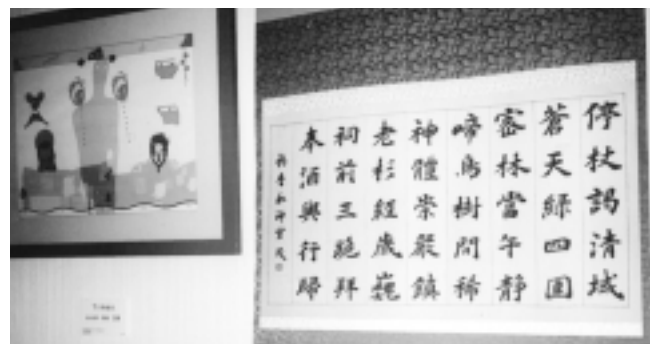 停杖謁清域
蒼天綠四圍
密林當午靜
啼鳥樹間稀
神體崇嚴鎮
老杉經歲巍
祠前三絶拜
奉酒與行歸